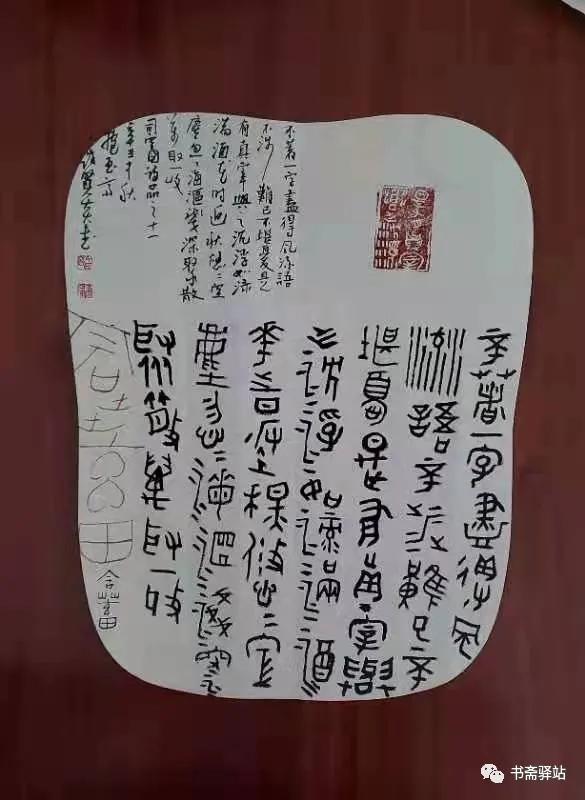 不著一字盡得風
流語不涉難已不
堪憂是有真宰與
之沈浮如淥滿酒
花時返秋悠〻空
塵忽〻海漚淺深
聚散萬取一收
含蓄
不著一字盡得風流語
不涉難已不堪憂是
有真宰與之沉浮如淥
滿酒花時返秋悠〻空
塵忽〻海漚淺深聚散
萬取一收
司空圖詩品之十一
辛丑中秋
书斋驿站